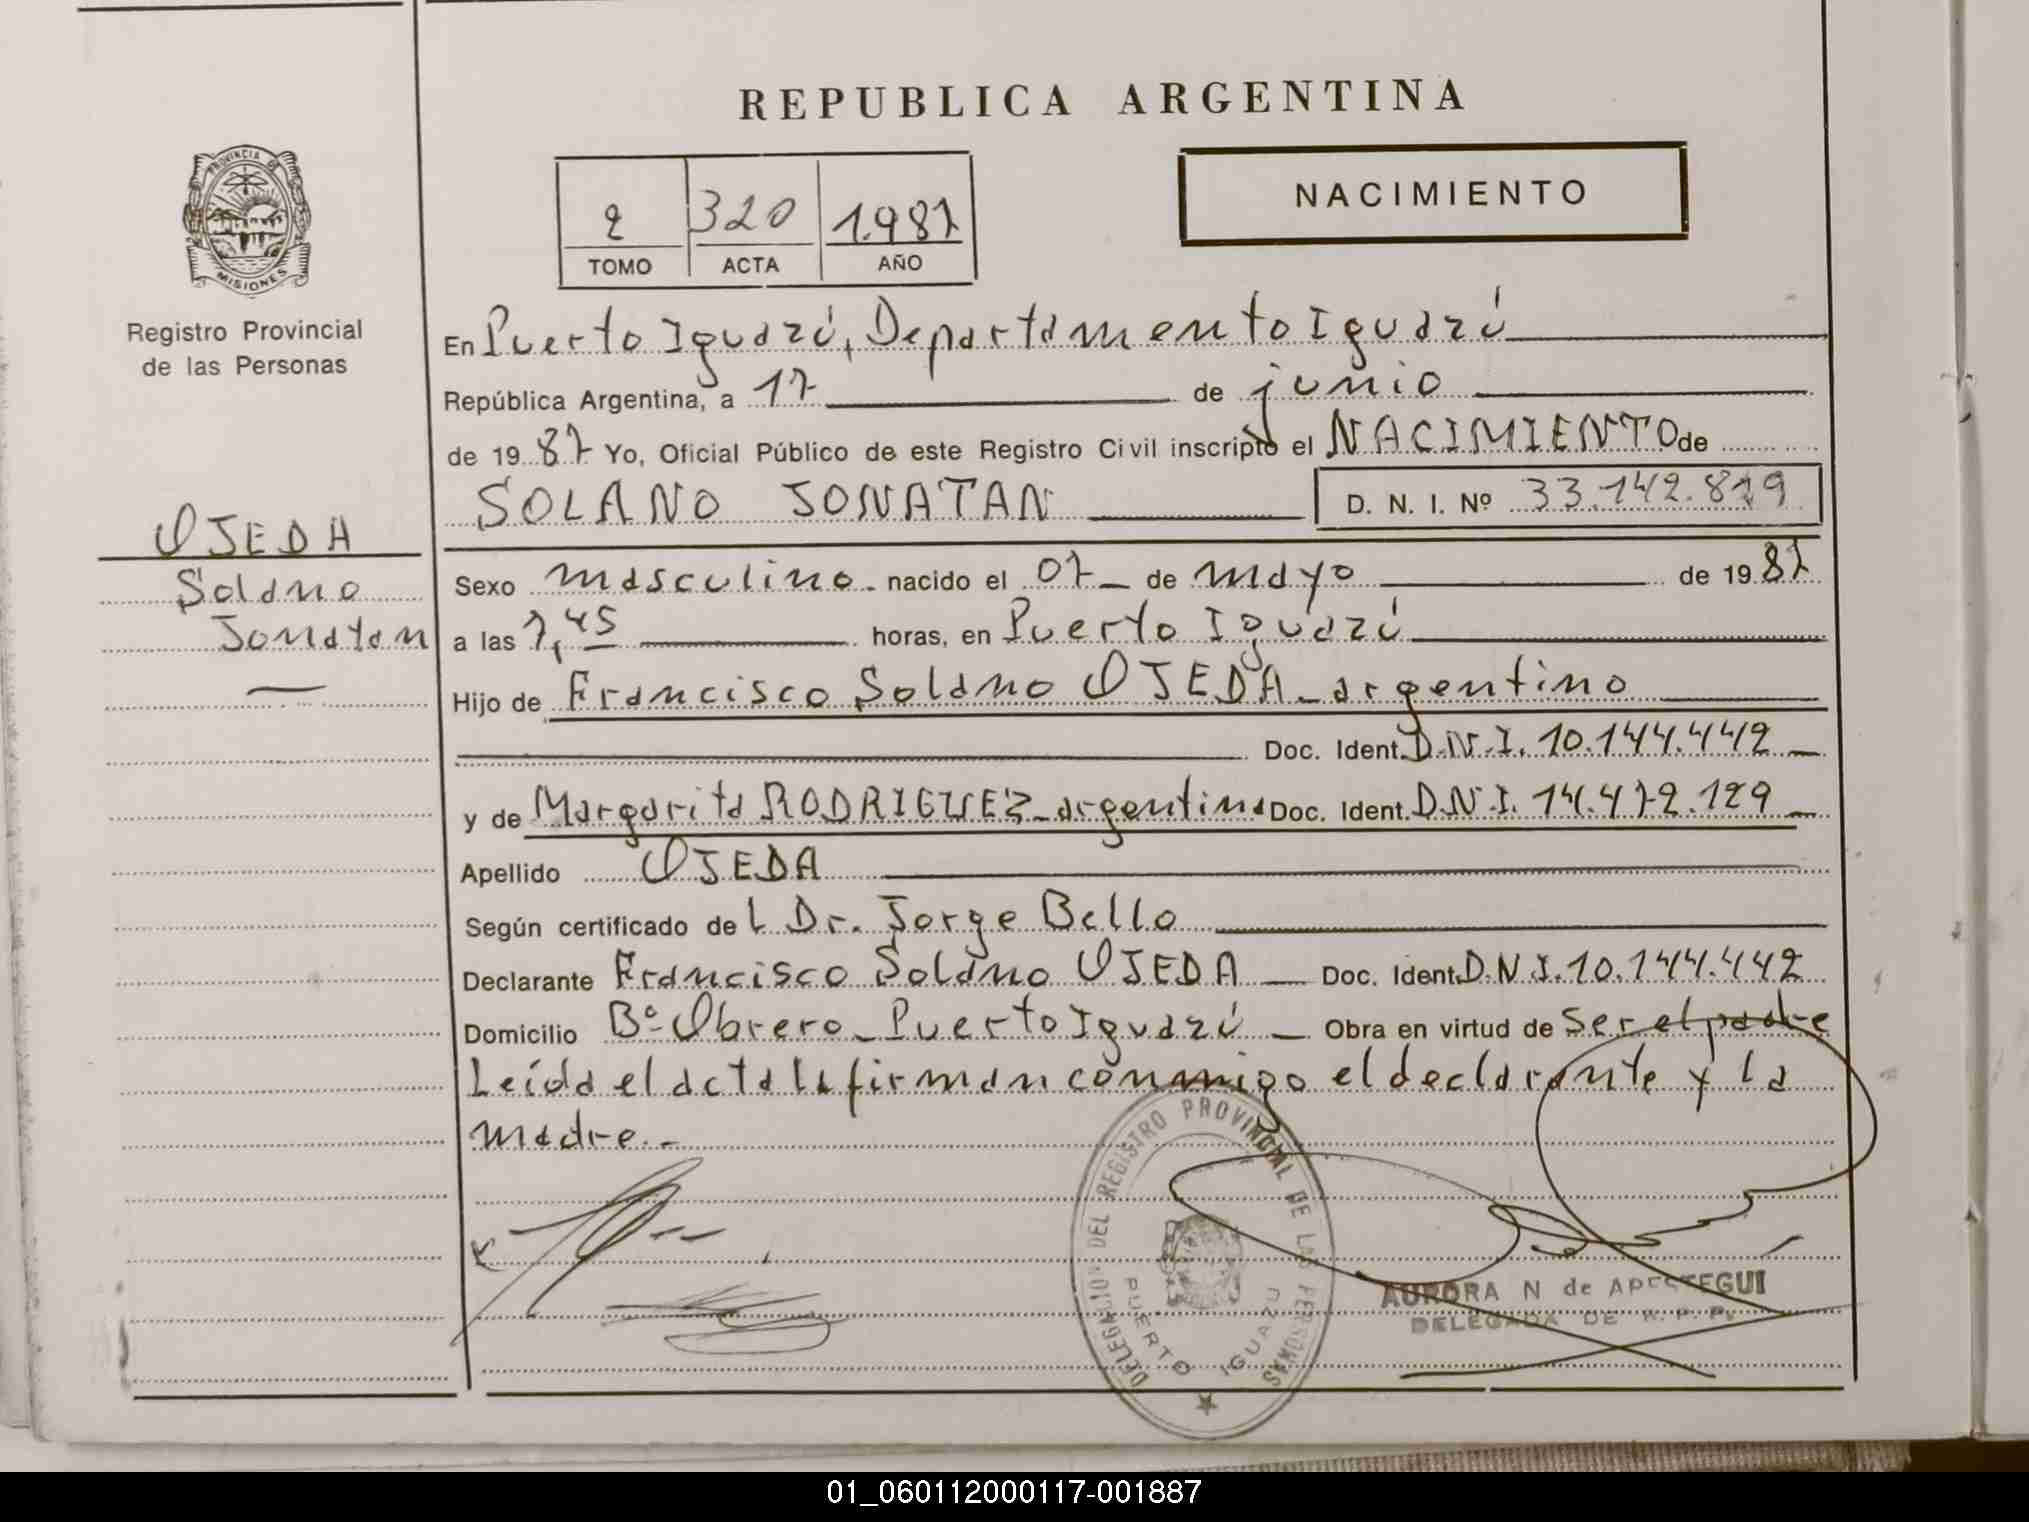 REPUBLICA ARGENTINA
PROVINCIA DE
MISIONES
Registro Provincial
de las Personas
2 320 1.987
TOMO ACTA AÑO
NACIMIENTO
En Puerto Iguazú, Departamento Iguazú
República Argentina, a 17 de junio
de 1987 Yo, Oficial Público de este Registro Civil inscripto el NACIMIENTO de
SOLANO JONATAN D. N. I. Nº 33.142.819
OJEDA
Solano
Jonatan
Sexo masculino.- nacido el 07 de mayo de 1987
a las 7,45 horas, en Puerto Iguazú
Hijo de Francisco Solano OJEDA - argentino
Doc. Ident. D.N.I. 10.144.442
y de Margarita RODRIGUEZ - argentina Doc. Ident. D.N.I. 14.472.129
Apellido OJEDA
Según certificado del Dr. Jorge Bello
Declarante Francisco Solano OJEDA Doc. Ident. D.N.I. 10.144.442
Domicilio Bº Obrero - Puerto Iguazú Obra en virtud de Ser el padre
Leída el acta la firman conmigo el declarante y la
madre.-
DELEGACION DEL REGISTRO PROVINCIAL DE LAS PERSONAS
PUERTO IGUAZU
AURORA N de APESTEGUI
DELEGADA DE R. P. P.
01_060112000117-001887